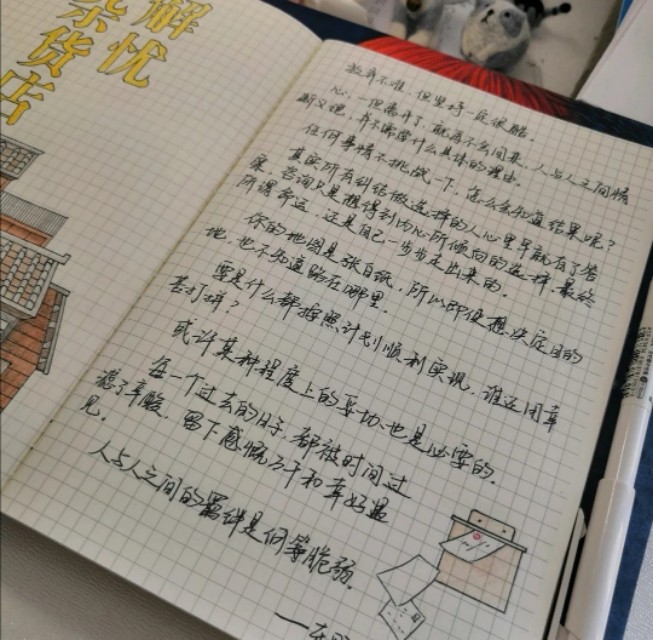 解忧
杂货店
放弃不难，但坚持一定很酷。
心一但离开了，就再不会回来，人与人之间情
断义绝，并不需要什么具体的理由。
任何事情不挑战一下，怎么会知道结果呢？
其实所有纠结做选择的人心里早就有了答
案，咨询只是想得到内心所倾向的选择，最终
所谓命运，还是自己一步步走出来的。
你的地图是张白纸，所以即使想决定目的
地，也不知道路在哪里。
要是什么都按照计划顺利实现，谁还用辛
苦打拼？
或许某种程度上的妥协也是必要的。
每一个过去的日子，都被时间过
滤了辛酸，留下感慨万千和幸好遇
见。
人与人之间的羁绊是何等脆弱。
——东野